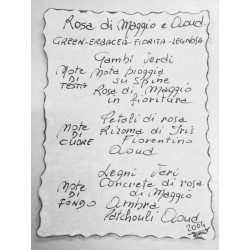 Rosa di Maggio e Oud
GREEN-ERBACEA-FIORITA-LEGNOSA
Gambi Verdi
NOTE DI TESTA Nota pioggia
su Spine
Rosa di Maggio
in fioritura
Petali di rosa
NOTE DI CUORE Rizoma di Iris
Fiorentino
Oud
Legni Veri
NOTE DI FONDO Concreta di rosa
di Maggio
Ambra
Patchouli Oud
2004